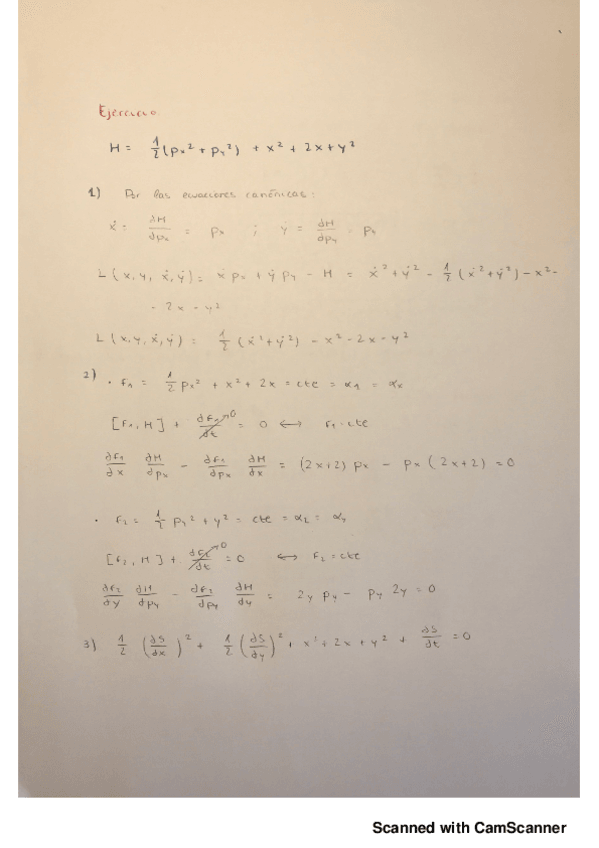 Ejercicio
H = 1/2 (px² + py²) + x² + 2x + y²
1) Por las ecuaciones canónicas:
ẋ = ∂H/∂px = px ; ẏ = ∂H/∂py = py
L(x, y, ẋ, ẏ) = ẋ px + ẏ py - H = ẋ² + ẏ² - 1/2 (ẋ² + ẏ²) - x² -
- 2x - y²
L(x, y, ẋ, ẏ) = 1/2 (ẋ² + ẏ²) - x² - 2x - y²
2) · F1 = 1/2 px² + x² + 2x = cte = α1 = αx
[F1, H] + ∂F1/∂t →0 = 0 ⟷ F1 = cte
∂F1/∂x ∂H/∂px - ∂F1/∂px ∂H/∂x = (2x+2) px - px (2x+2) = 0
· F2 = 1/2 py² + y² = cte = α2 = αy
[F2, H] + ∂F2/∂t →0 = 0 ⟷ F2 = cte
∂F2/∂y ∂H/∂py - ∂F2/∂py ∂H/∂y = 2y py - py 2y = 0
3) 1/2 (∂S/∂x)² + 1/2 (∂S/∂y)² + x² + 2x + y² + ∂S/∂t = 0
Scanned with CamScanner